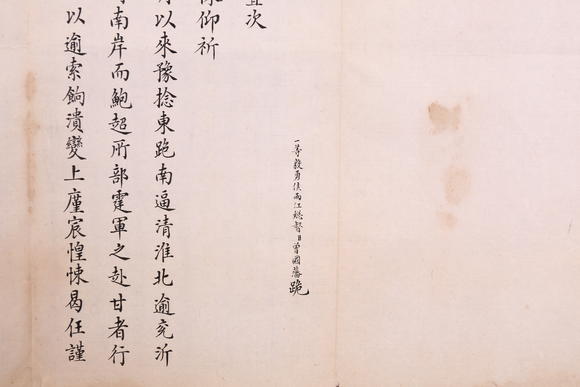 一等毅勇侯兩江總督臣曾國藩跪
次
仰祈
以來豫捻東跑南逼清淮北逾兗沂
南岸而鮑超所部霆軍之赴甘者行
以逾索餉潰變上廑宸惶悚曷任謹